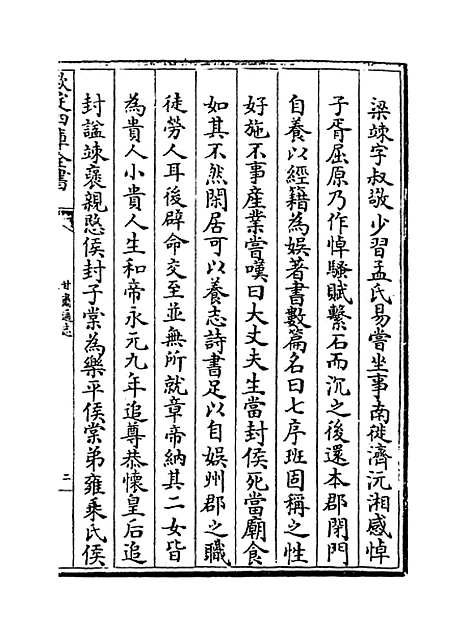 梁竦字叔敬少習孟氏易嘗坐事南徙濟沅湘感悼
子胥屈原乃作悼騷賦繫石而沉之後還本郡閉門
自養以經籍為娛著書數篇名曰七序班固稱之性
好施不事産業嘗嘆曰大丈夫生當封侯死當廟食
如其不然閑居可以養志詩書足以自娛州郡之職
徒勞人耳後辟命交至並無所就章帝納其二女皆
為貴人小貴人生和帝永元九年追尊恭懷皇后追
封諡竦襃親愍侯封子棠為樂平侯棠弟雍乘氏侯
欽定四庫全書
甘肅通志
二